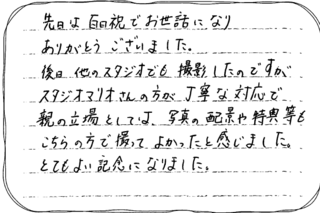 先日は百日祝でお世話になり
ありがとうございました。
後日他のスタジオでも撮影したのですが
スタジオマリオさんの方が丁寧な対応で
親の立場としては、写真の配景や特典等も
こちらの方で撮ってよかったと感じました。
とてもよい記念になりました。